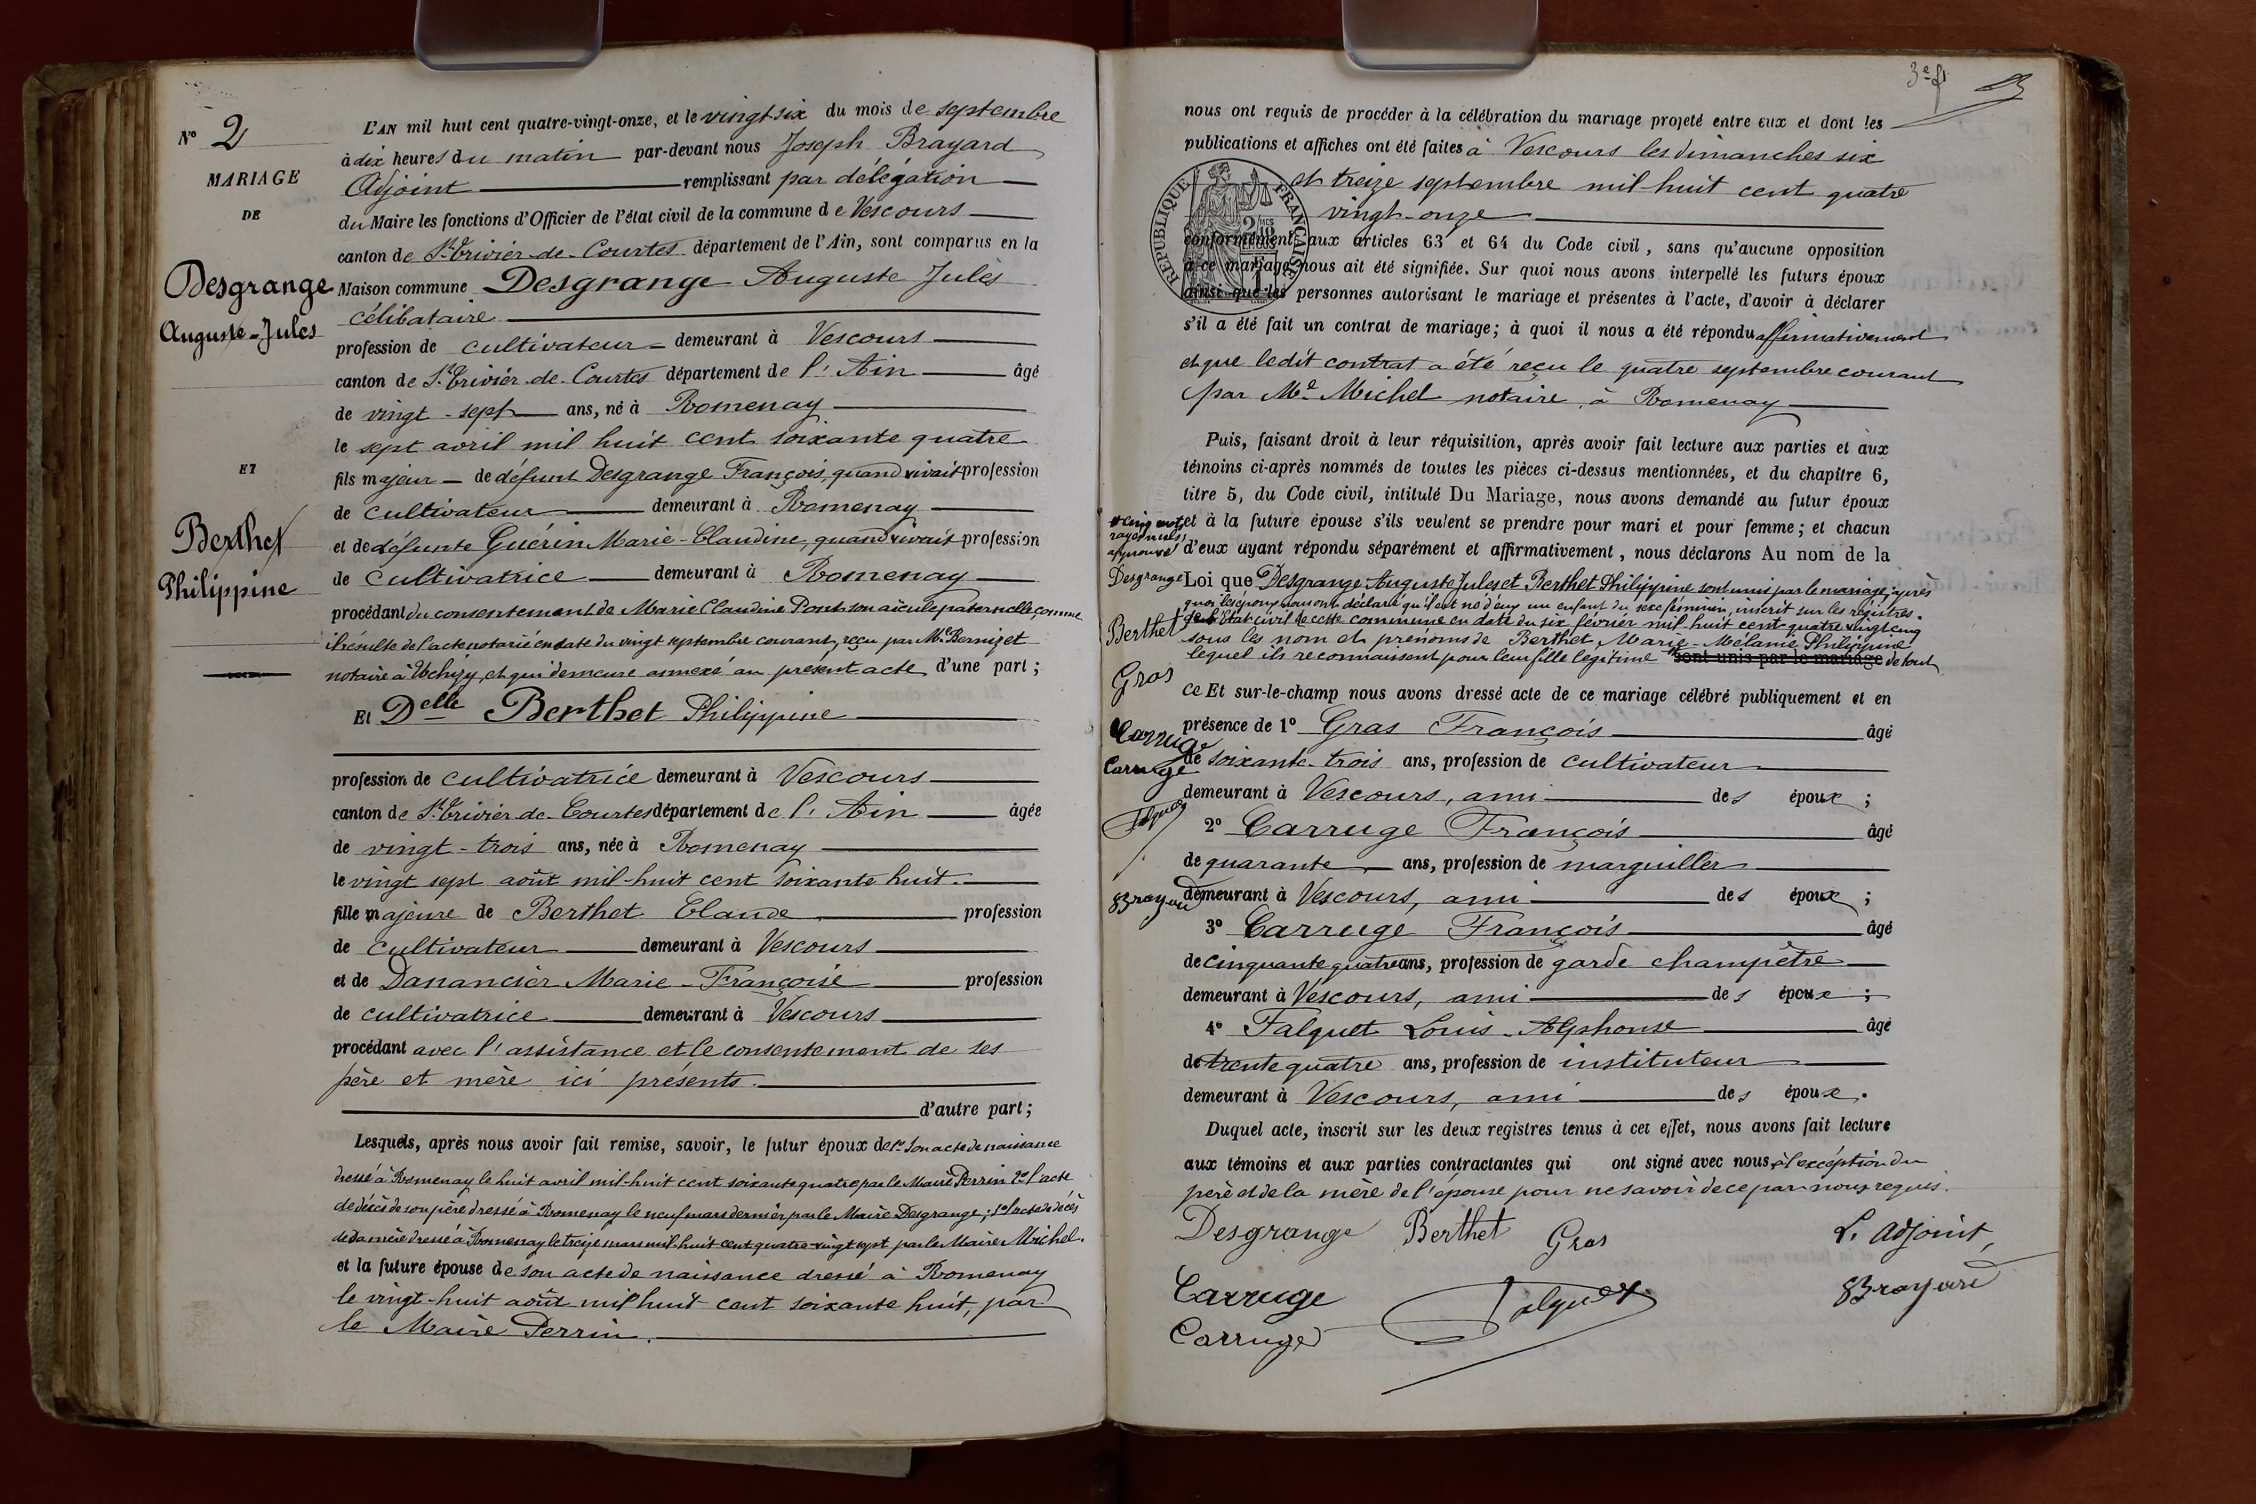 N° 2
MARIAGE
DE
Desgrange
Auguste-Jules
ET
Berthet
Philippine
L'AN mil huit cent quatre-vingt-onze, et le vingt six du mois de septembre
à dix heures du matin par-devant nous Joseph Brayard
Adjoint remplissant par délégation
du Maire les fonctions d'Officier de l'état civil de la commune de Vescours
canton de St Trivier-de-Courtes département de l'Ain, sont comparus en la
Maison commune Desgrange Auguste Jules
célibataire
profession de cultivateur demeurant à Vescours
canton de St Trivier-de-Courtes département de l'Ain âgé
de vingt-sept ans, né à Romenay
le sept avril mil huit cent soixante quatre
fils majeur de défunt Desgrange François, quand vivait profession
de cultivateur demeurant à Romenay
et de défunte Guérin Marie-Claudine, quand vivait profession
de cultivatrice demeurant à Romenay
procédant du consentement de Marie Claudine Pont son aïeule paternelle, comme
il résulte de l'acte notarié en date du vingt septembre courant, reçu par Me Bernizet
notaire à Uchizy, et qui demeure annexé au présent acte d'une part ;
Et Delle Berthet Philippine
profession de cultivatrice demeurant à Vescours
canton de St Trivier-de-Courtes département de l'Ain âgée
de vingt-trois ans, née à Romenay
le vingt sept août mil-huit cent soixante huit.
fille majeure de Berthet Claude profession
de cultivateur demeurant à Vescours
et de Danancier Marie-Françoise profession
de cultivatrice demeurant à Vescours
procédant avec l'assistance et le consentement de ses
père et mère ici présents.
d'autre part ;
Lesquels, après nous avoir fait remise, savoir, le futur époux de 1° son acte de naissance
dressé à Romenay le huit avril mil-huit cent soixante quatre par le Maire Perrin 2° l'acte
de décès de son père dressé à Romenay le neuf mars dernier par le Maire Desgrange ; 3° l'acte de décès
de sa mère dressé à Romenay le treize mars mil-huit cent quatre-vingt sept par le Maire Michel.
et la future épouse de son acte de naissance dressé à Romenay
le vingt-huit août mil huit cent soixante huit, par
le Maire Perrin.
nous ont requis de procéder à la célébration du mariage projeté entre eux et dont les
publications et affiches ont été faites à Vescours les dimanches six
et treize septembre mil-huit cent quatre
vingt-onze
RÉPUBLIQUE FRANÇAISE
conformément aux articles 63 et 64 du Code civil, sans qu'aucune opposition
à ce mariage nous ait été signifiée. Sur quoi nous avons interpellé les futurs époux
ainsi que les personnes autorisant le mariage et présentes à l'acte, d'avoir à déclarer
s'il a été fait un contrat de mariage ; à quoi il nous a été répondu affirmativement
et que ledit contrat a été reçu le quatre septembre courant
par Me Michel notaire à Romenay
Puis, faisant droit à leur réquisition, après avoir fait lecture aux parties et aux
témoins ci-après nommés de toutes les pièces ci-dessus mentionnées, et du chapitre 6,
titre 5, du Code civil, intitulé Du Mariage, nous avons demandé au futur époux
et à la future épouse s'ils veulent se prendre pour mari et pour femme ; et chacun
d'eux ayant répondu séparément et affirmativement, nous déclarons Au nom de la
Loi que Desgrange Auguste Jules et Berthet Philippine sont unis par le mariage, après
quoi les époux nous ont déclaré qu'il est né d'eux un enfant du sexe féminin, inscrit sur les registres
de l'état civil de cette commune en date du six février mil-huit cent-quatre vingt cinq
sous les nom et prénoms de Berthet Marie-Mélanie Philippine
lequel ils reconnaissent pour leur fille légitime sont unis par le mariage de tout
ce Et sur-le-champ nous avons dressé acte de ce mariage célébré publiquement et en
présence de 1° Gras François âgé
de soixante-trois ans, profession de cultivateur
demeurant à Vescours, ami des époux ;
2° Carruge François âgé
de quarante ans, profession de marguiller
demeurant à Vescours, ami des époux ;
3° Carruge François âgé
de cinquante quatre ans, profession de garde champêtre
demeurant à Vescours, ami des époux ;
4° Falquet Louis-Alphonse âgé
de trente quatre ans, profession de instituteur
demeurant à Vescours, ami des époux.
Duquel acte, inscrit sur les deux registres tenus à cet effet, nous avons fait lecture
aux témoins et aux parties contractantes qui ont signé avec nous à l'exception du
père et de la mère de l'épouse pour ne savoir de ce par nous requis.
Desgrange Berthet Gras L'Adjoint,
Carruge Falquet Brayard
Carruge
cinq mots
rayés nuls
approuvé
Desgrange
Berthet
Gras
Carruge
Carruge
Falquet
Brayard